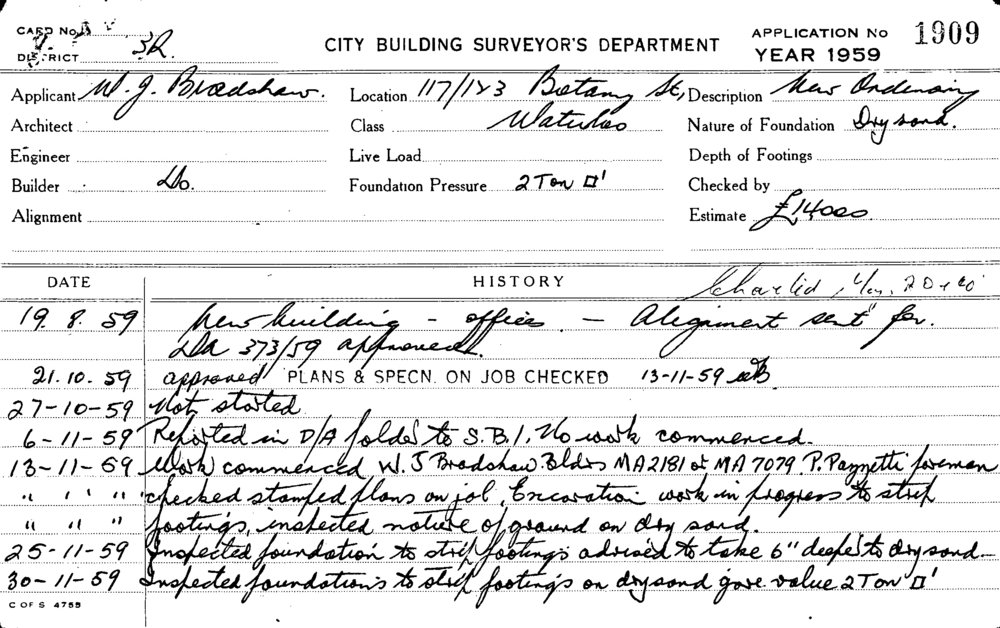 CARD No.
DISTRICT 3R.
CITY BUILDING SURVEYOR'S DEPARTMENT
APPLICATION No 1909
YEAR 1959
Applicant W. J. Bradshaw. Location 117/123 Botany St, Description New
Architect Class Waterloo Nature of Foundation Dry sand.
Engineer Live Load Depth of Footings
Builder Do. Foundation Pressure 2 Ton □' Checked by
Alignment Estimate £14000
DATE HISTORY
19. 8. 59 New building - offices. - Alignment sent for.
DA 373/59 approved.
21. 10. 59 approved PLANS & SPECN. ON JOB CHECKED 13-11-59
27-10-59 Not started
6-11-59 Reported in D/A folder to S.B.I. No work commenced.
13-11-59 Work commenced W. J Bradshaw. Bldrs MA2181 or MA7079. P. Pazzetti foreman
" " " checked stamped plans on job. Excavation work in progress to strip
" " " footings, inspected nature of ground on dry sand.
25-11-59 Inspected foundation to strip footings advised to take 6" deeper to dry sand-
30-11-59 Inspected foundations to strip footings on dry sand gave value 2 Ton □'
C OF S 4755